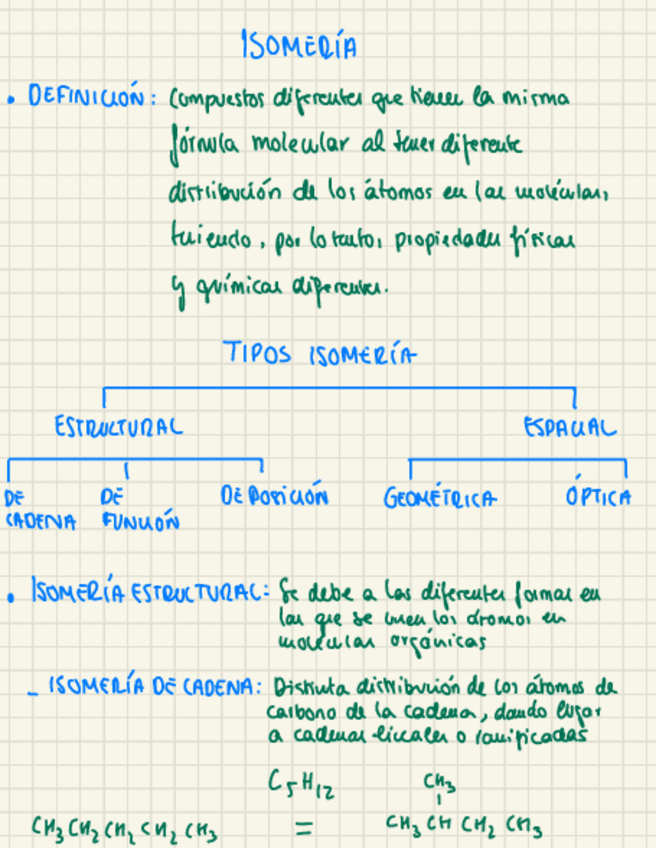 ISOMERÍA
• DEFINICIÓN: Compuestos diferentes que tienen la misma
fórmula molecular al tener diferente
distribución de los átomos en las moléculas,
teniendo, por lo tanto, propiedades físicas
y químicas diferentes.
TIPOS ISOMERÍA
ESTRUCTURAL ESPACIAL
DE CADENA DE FUNCIÓN DE POSICIÓN GEOMÉTRICA ÓPTICA
• ISOMERÍA ESTRUCTURAL: Se debe a las diferentes formas en
las que se unen los átomos en
moléculas orgánicas
- ISOMERÍA DE CADENA: Distinta distribución de los átomos de
carbono de la cadena, dando lugar
a cadenas lineales o ramificadas
C₅H₁₂ CH₃
CH₃ CH₂ CH₂ CH₂ CH₃ = CH₃ CH CH₂ CH₃